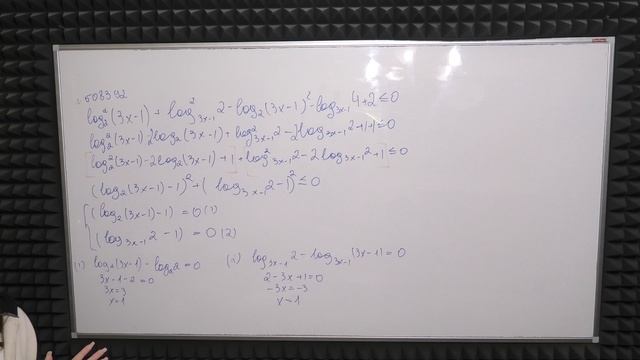 508392
log₂²(3x-1) + log²₃ₓ₋₁ 2 - log₂(3x-1)² - log₃ₓ₋₁ 4 + 2 ≤ 0
log₂²(3x-1) - 2log₂(3x-1) + log²₃ₓ₋₁ 2 - 2log₃ₓ₋₁ 2 + 1 + 1 ≤ 0
[log₂²(3x-1) - 2log₂(3x-1) + 1] + [log²₃ₓ₋₁ 2 - 2log₃ₓ₋₁ 2 + 1] ≤ 0
(log₂(3x-1) - 1)² + (log₃ₓ₋₁ 2 - 1)² ≤ 0
(log₂(3x-1) - 1) = 0 (1)
(log₃ₓ₋₁ 2 - 1) = 0 (2)
(1) log₂(3x-1) - log₂ 2 = 0
3x-1-2 = 0
3x = 3
x = 1
log₃ₓ₋₁ 2 - log₃ₓ₋₁ (3x-1) = 0
2 - 3x + 1 = 0
-3x = -3
x = 1